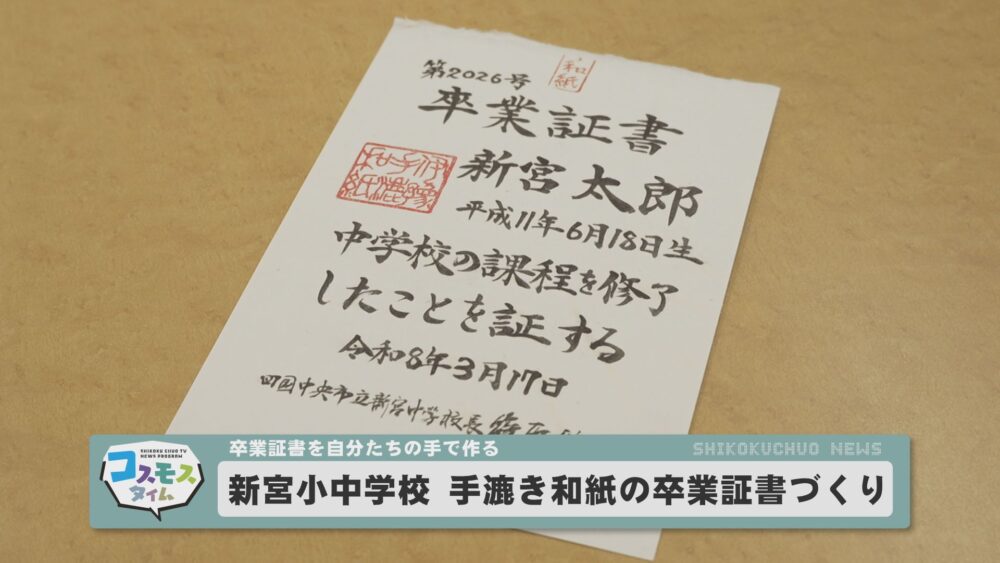 和紙
第2026号
卒業証書
伊豫手漉和紙
新宮 太郎
平成11年6月18日生
中学校の課程を修了
したことを証する
令和8年3月17日
四国中央市立新宮中学校長
SHIKOKU CHUO TV
NEWS PROGRAM
コスモス
タイム
卒業証書を自分たちの手で作る
SHIKOKUCHUO NEWS
新宮小中学校 手漉き和紙の卒業証書づくり